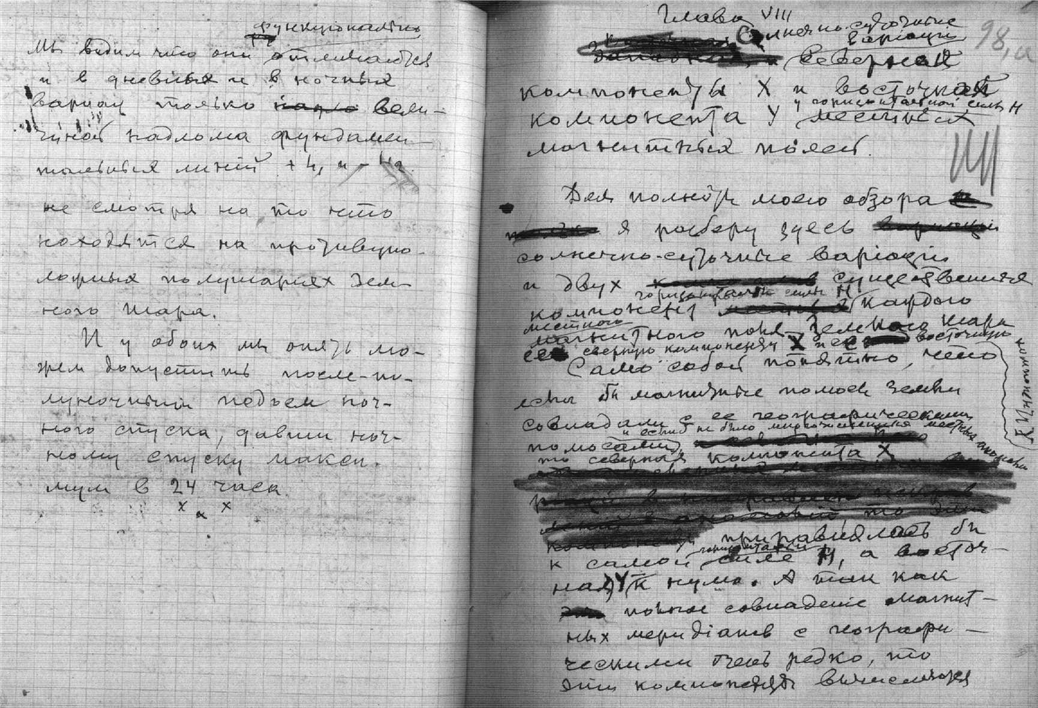 функционально
Мы видим что они отличаются
и в дневныя и в ночныя
вариац только вели-
чиной надлома фундамен-
тальныя линий +4, и -4а
не смотря на то что
находятся на противупо-
ложныя полушариях Зем-
ного шара.
И у обоих мы опять мо-
жем допустить после-по-
луночный подъем ноч-
ного спуска, давши ноч-
ному спуску макси-
мум в 24 часа.
x x x
Глава VIII
98,а
Солнечно-суточные
вариаций
Северная
компоненты X и восточная
у горизонтальной силы H
компонента Y местныя
магнитныя полей.
Для полноты моего обзора
я разберу здесь
солнечно-суточные вариации
и двух существенныя
горизонтальной силы H
компонент каждого
местного
магнитного поля Земного шара
северную компоненту X и восточную
Само собой понятно, что
если бы магнитные полюсы Земли
совпадали с ее географическими
полюсами
то северная компонента X
приравнялась бы
горизонтальной
к самой силе H, а восточ-
ная Y к нулю. А так как
полное совпадение магнит-
ных меридианов с географи-
ческими очень редко, то
эти компоненты вычисляются